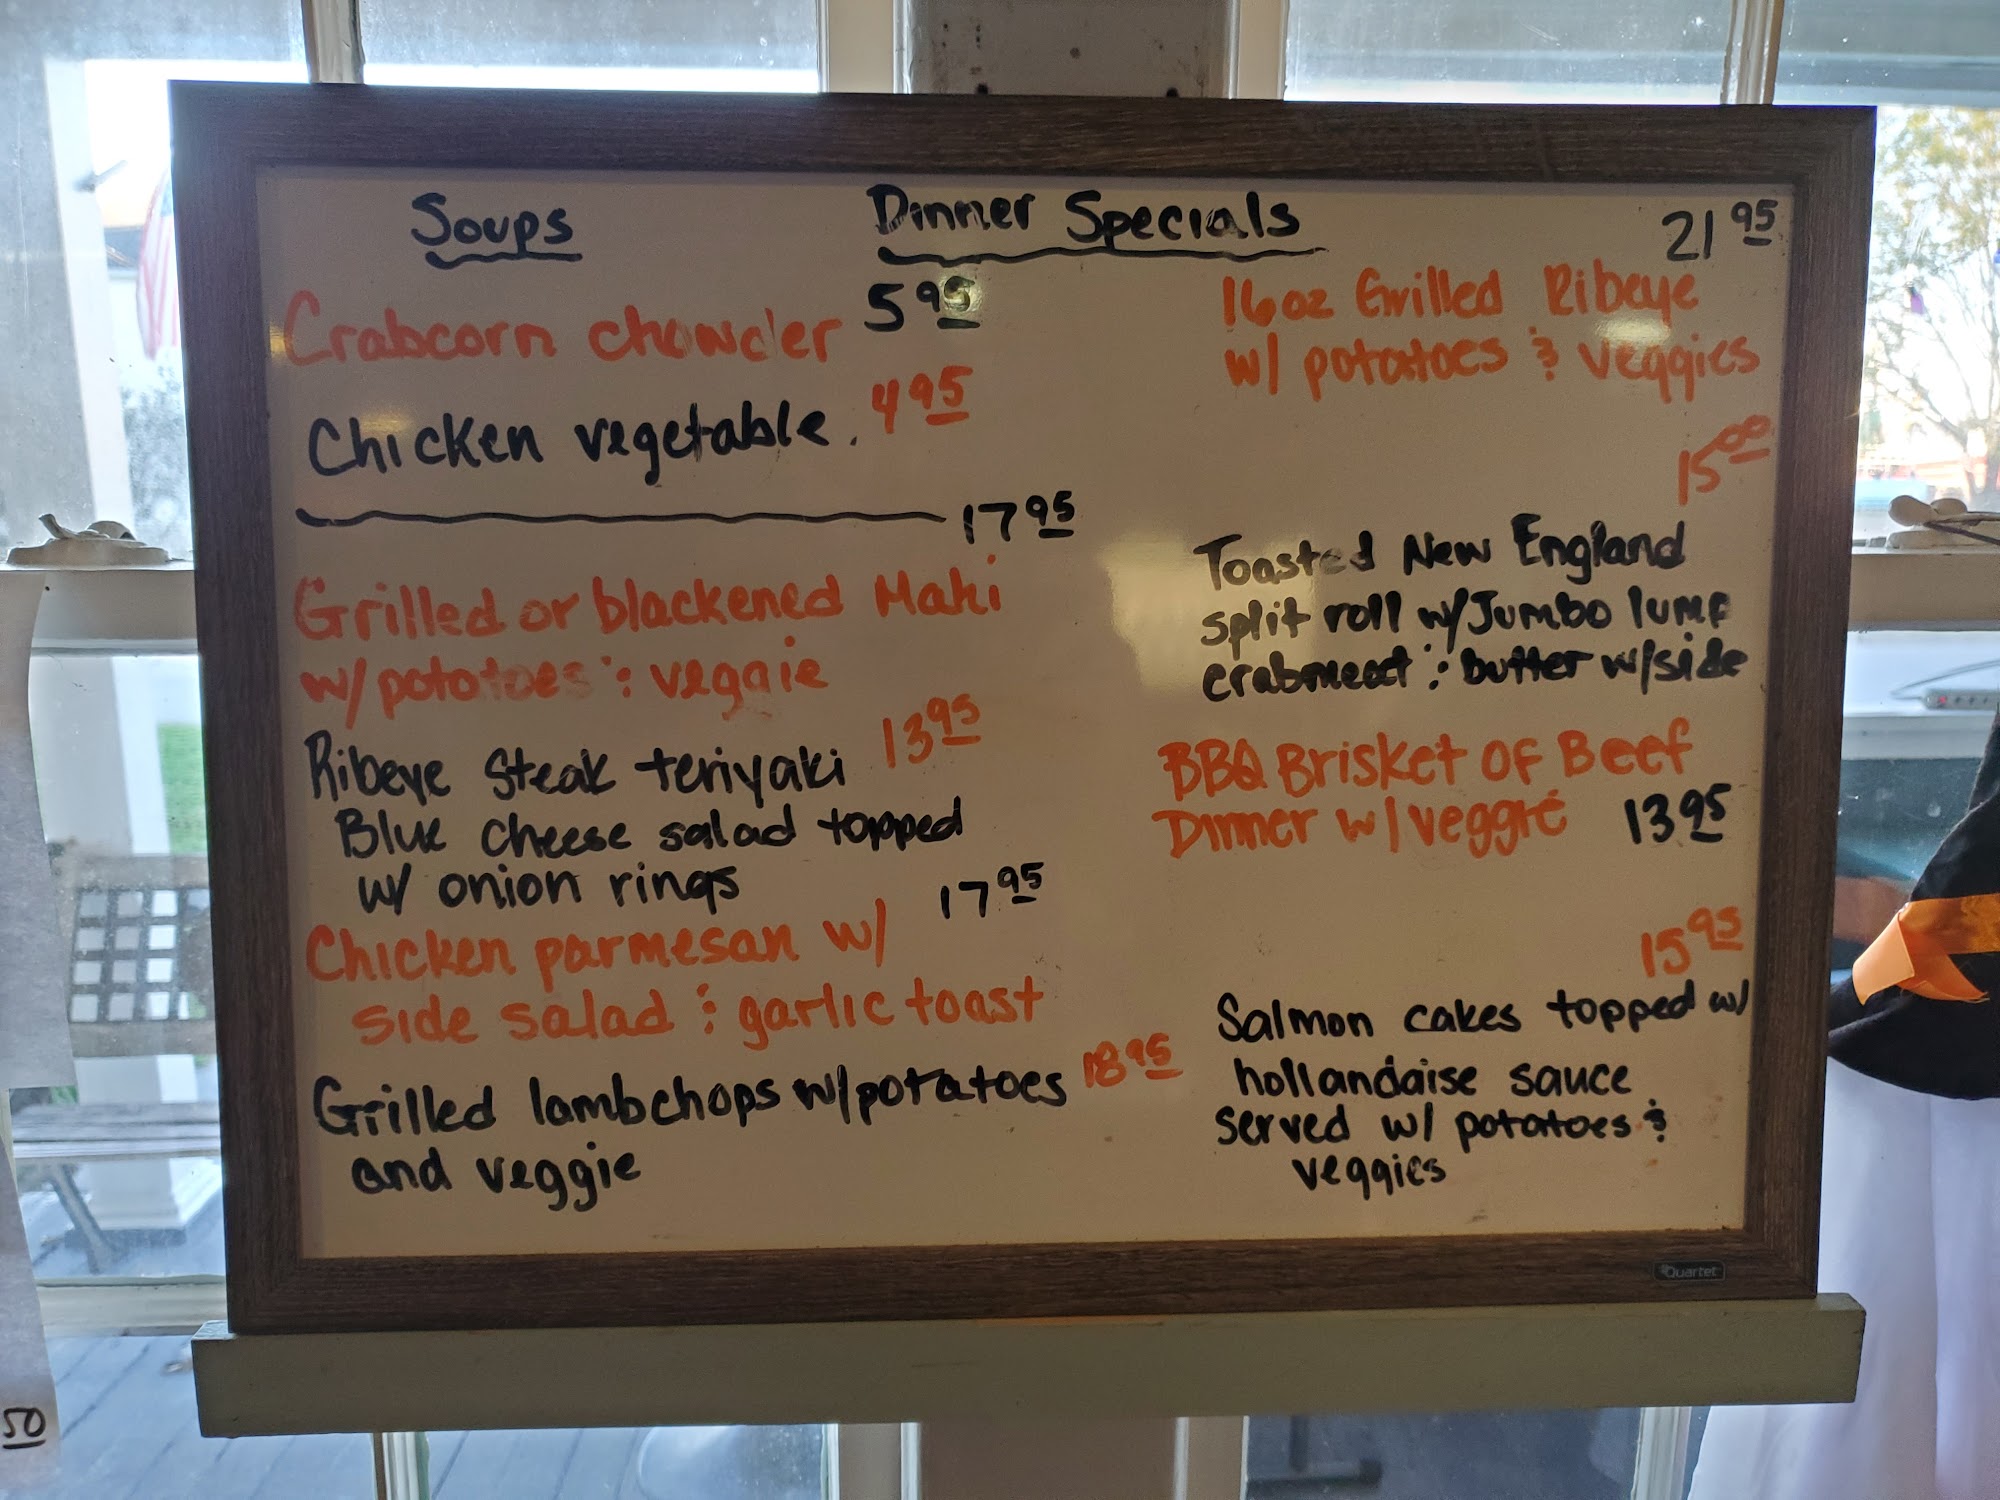 Soups
Dinner Specials
Crabcorn chowder 5 95
Chicken vegetable. 4 95
17 95
Grilled or blackened Mahi
w/potatoes & veggie
Ribeye Steak teriyaki 13 95
Blue cheese salad topped
w/ onion rings
Chicken parmesan w/ 17 95
side salad & garlic toast
Grilled lambchops w/potatoes 18 95
and veggie
21 95
16oz Grilled Ribeye
w/ potatoes & veggies
15 00
Toasted New England
split roll w/Jumbo lump
crabmeat & butter w/side
BBQ Brisket OF Beef
Dinner w/veggie 13 95
15 95
Salmon cakes topped w/
hollandaise sauce
served w/ potatoes &
veggies
Quartet
50